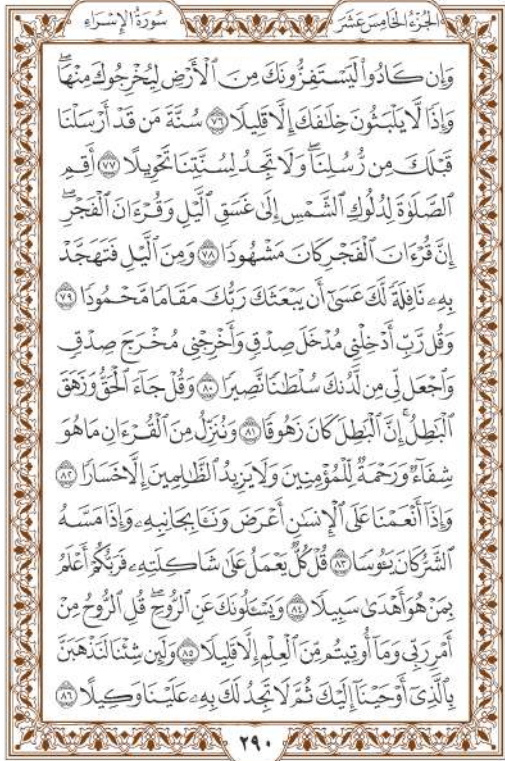 سُورَةُ الإِسْرَاءِ
الجُزْءُ الخَامِسَ عَشَرَ
وَإِن كَادُوا۟ لَيَسْتَفِزُّونَكَ مِنَ ٱلْأَرْضِ لِيُخْرِجُوكَ مِنْهَا ۖ
وَإِذًا لَّا يَلْبَثُونَ خِلَٰفَكَ إِلَّا قَلِيلًا ٧٦ سُنَّةَ مَن قَدْ أَرْسَلْنَا
قَبْلَكَ مِن رُّسُلِنَا ۖ وَلَا تَجِدُ لِسُنَّتِنَا تَحْوِيلًا ٧٧ أَقِمِ
ٱلصَّلَوٰةَ لِدُلُوكِ ٱلشَّمْسِ إِلَىٰ غَسَقِ ٱلَّيْلِ وَقُرْءَانَ ٱلْفَجْرِ ۖ
إِنَّ قُرْءَانَ ٱلْفَجْرِ كَانَ مَشْهُودًا ٧٨ وَمِنَ ٱلَّيْلِ فَتَهَجَّدْ
بِهِۦ نَافِلَةً لَّكَ عَسَىٰٓ أَن يَبْعَثَكَ رَبُّكَ مَقَامًا مَّحْمُودًا ٧٩
وَقُل رَّبِّ أَدْخِلْنِى مُدْخَلَ صِدْقٍ وَأَخْرِجْنِى مُخْرَجَ صِدْقٍ
وَٱجْعَل لِّى مِن لَّدُنكَ سُلْطَٰنًا نَّصِيرًا ٨٠ وَقُلْ جَآءَ ٱلْحَقُّ وَزَهَقَ
ٱلْبَٰطِلُ ۚ إِنَّ ٱلْبَٰطِلَ كَانَ زَهُوقًا ٨١ وَنُنَزِّلُ مِنَ ٱلْقُرْءَانِ مَا هُوَ
شِفَآءٌ وَرَحْمَةٌ لِّلْمُؤْمِنِينَ وَلَا يَزِيدُ ٱلظَّٰلِمِينَ إِلَّا خَسَارًا ٨٢
وَإِذَآ أَنْعَمْنَا عَلَى ٱلْإِنسَٰنِ أَعْرَضَ وَنَـَٔا بِجَانِبِهِۦ وَإِذَا مَسَّهُ
ٱلشَّرُّ كَانَ يَـُٔوسًا ٨٣ قُلْ كُلٌّ يَعْمَلُ عَلَىٰ شَاكِلَتِهِۦ فَرَبُّكُمْ أَعْلَمُ
بِمَنْ هُوَ أَهْدَىٰ سَبِيلًا ٨٤ وَيَسْـَٔلُونَكَ عَنِ ٱلرُّوحِ ۖ قُلِ ٱلرُّوحُ مِنْ
أَمْرِ رَبِّى وَمَآ أُوتِيتُم مِّنَ ٱلْعِلْمِ إِلَّا قَلِيلًا ٨٥ وَلَئِن شِئْنَا لَنَذْهَبَنَّ
بِٱلَّذِىٓ أَوْحَيْنَآ إِلَيْكَ ثُمَّ لَا تَجِدُ لَكَ بِهِۦ عَلَيْنَا وَكِيلًا ٨٦
٢٩٠